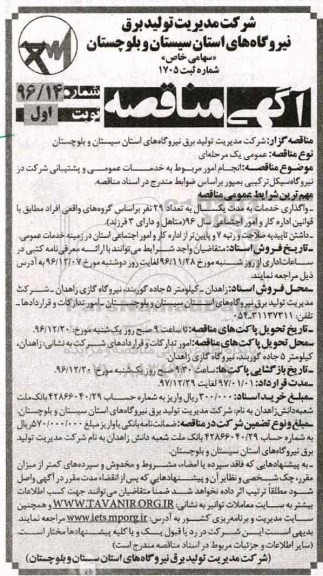 شرکت مدیریت تولید برق
نیروگاه‌های استان سیستان و بلوچستان
«سهامی خاص»
شماره ثبت ۱۷۰۵
آگهی مناقصه
شماره ۹۶/۱۴
نوبت اول
مناقصه گزار: شرکت مدیریت تولید برق نیروگاه‌های استان سیستان و بلوچستان
نوع مناقصه: عمومی یک مرحله‌ای
موضوع مناقصه: انجام امور مربوط به خدمات عمومی و پشتیبانی شرکت در
نیروگاه سیکل ترکیبی بمپور براساس ضوابط مندرج در اسناد مناقصه.
مهم‌ترین شرایط عمومی مناقصه
ـ واگذاری خدمات به مدت یکسال به تعداد ۲۹ نفر براساس گروه‌های واقعی افراد مطابق با
قوانین اداره کار و امور اجتماعی سال ۹۶ (متاهل و دارای ۲ فرزند).
ـ داشتن تاییدیه صلاحیت و رتبه ۷ و پایین‌تر از اداره کار و امور اجتماعی استان در زمینه خدمات عمومی.
ـ تاریخ فروش اسناد: متقاضیان واجد شرایط می‌توانند با ارائه معرفی‌نامه کتبی در
ساعات اداری از روز شنبه مورخ ۹۶/۱۱/۲۸ لغایت روز دوشنبه مورخ ۹۶/۱۲/۰۷ به آدرس
ذیل مراجعه نمایند.
ـ محل فروش اسناد: زاهدان ـ کیلومتر ۵ جاده گوربند، نیروگاه گازی زاهدان ـ شرکت
مدیریت تولید برق نیروگاه‌های استان سیستان و بلوچستان ـ امور تدارکات و قراردادها ـ
تلفن: ۳۱۱۳۷۳۱۱-۰۵۴
ـ تاریخ تحویل پاکت‌های مناقصه: تا ساعت ۹ صبح روز یکشنبه مورخ: ۹۶/۱۲/۲۰
ـ محل تحویل پاکت‌های مناقصه: امور تدارکات و قراردادهای شرکت به نشانی: زاهدان،
کیلومتر ۵ جاده گوربند، نیروگاه گازی زاهدان.
ـ تاریخ بازگشایی پاکت‌ها: ساعت ۹:۳۰ صبح روز یکشنبه مورخ: ۹۶/۱۲/۲۰
ـ مدت قرارداد: ۹۷/۰۱/۰۱ لغایت ۹۷/۱۲/۲۹
ـ مبلغ خرید اسناد: ۳۰۰/۰۰۰ ریال واریز به شماره حساب ۴۲۸۶۶۰۴۰/۲۹ بانک ملت
شعبه دانش زاهدان به نام: شرکت مدیریت تولید برق نیروگاه‌های استان سیستان و بلوچستان.
ـ مبلغ و نوع تضمین شرکت در مناقصه: ضمانت‌نامه بانکی یا واریز مبلغ ۵۷۰/۰۰۰/۰۰۰ ریال
به شماره حساب ۴۲۸۶۶۰۴۰/۲۹ بانک ملت شعبه دانش زاهدان به نام شرکت مدیریت تولید
برق نیروگاه‌های استان سیستان و بلوچستان.
ـ به پیشنهادهایی که فاقد سپرده یا امضاء، مشروط و مخدوش و سپرده‌های کمتر از میزان
مقرر، چک شخصی و نظایر آن و پیشنهادهایی که پس از انقضاء مدت مقرر در آگهی واصل
شود مطلقاً ترتیب اثر داده نخواهد شد. ضمنا متقاضیان می‌توانند جهت کسب اطلاعات
بیشتر به سایت معاملات توانیر به نشانی: WWW.TAVANIR.ORG.IR و همچنین
سایت مدیریت و برنامه‌ریزی کشور به آدرس: www.iets.mporg.ir مراجعه نمایند.
بدیهی است این شرکت در رد یا قبول یک و یا کلیه پیشنهادها مختار است.
(سایر اطلاعات و جزئیات مربوط در اسناد مناقصه مندرج است)
(شرکت مدیریت تولید برق نیروگاه‌های استان سیستان و بلوچستان)